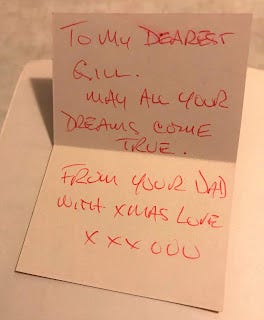 To My DEAREST
GILL.
MAY ALL YOUR
DREAMS COME
TRUE.
FROM YOUR DAD
WITH XMAS LOVE
X X X O O O